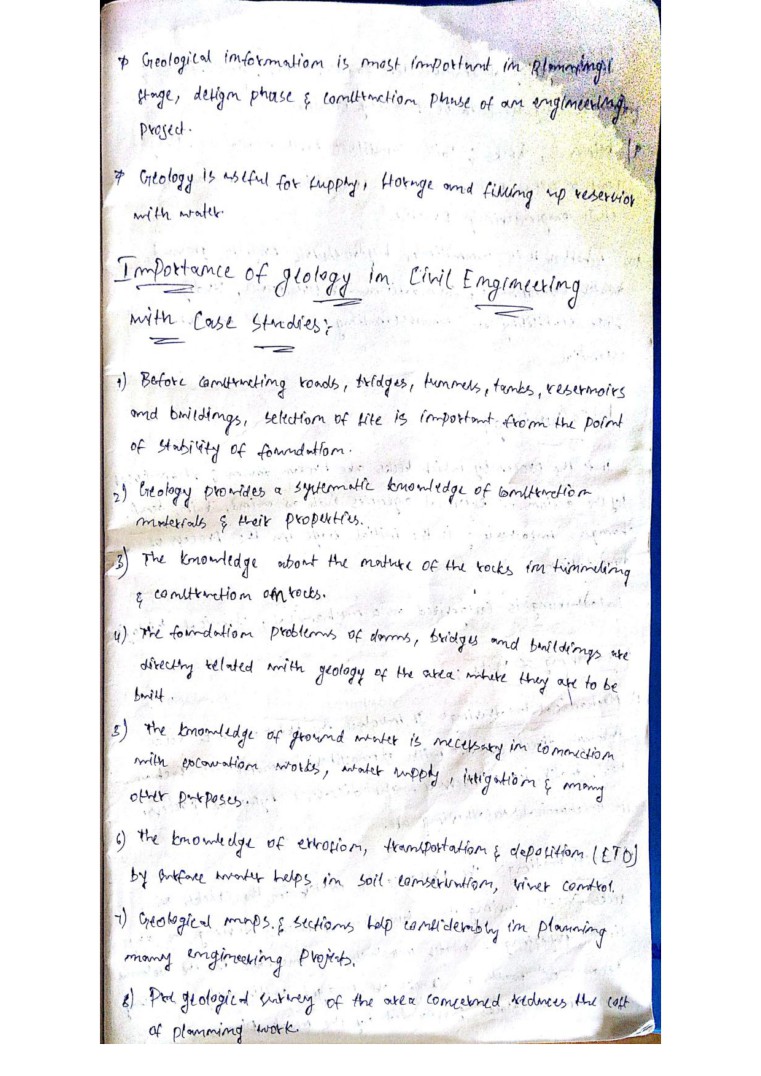 * Geological information is most important in planning
stage, design phase & construction phase of an engineering
project.
* Geology is useful for supply, storage and filling up reservior
with water.
Importance of geology in Civil Engineering
with Case Studies:
1) Before constructing roads, bridges, tunnels, tanks, reservoirs
and buildings, selection of site is important from the point
of stability of foundation.
2) Geology provides a systematic knowledge of construction
materials & their properties.
3) The knowledge about the nature of the rocks in tunneling
& construction on rocks.
4) The foundation problems of dams, bridges and buildings are
directly related with geology of the area where they are to be
built.
5) The knowledge of ground water is necessary in connection
with excavation works, water supply, irrigation & many
other purposes.
6) The knowledge of errosion, transportation & deposition (ETD)
by surface water helps in soil conservation, river control.
7) Geological maps & sections help considerably in planning
many engineering projects.
8) Pre geological survey of the area concerned reduces the cost
of planning work.